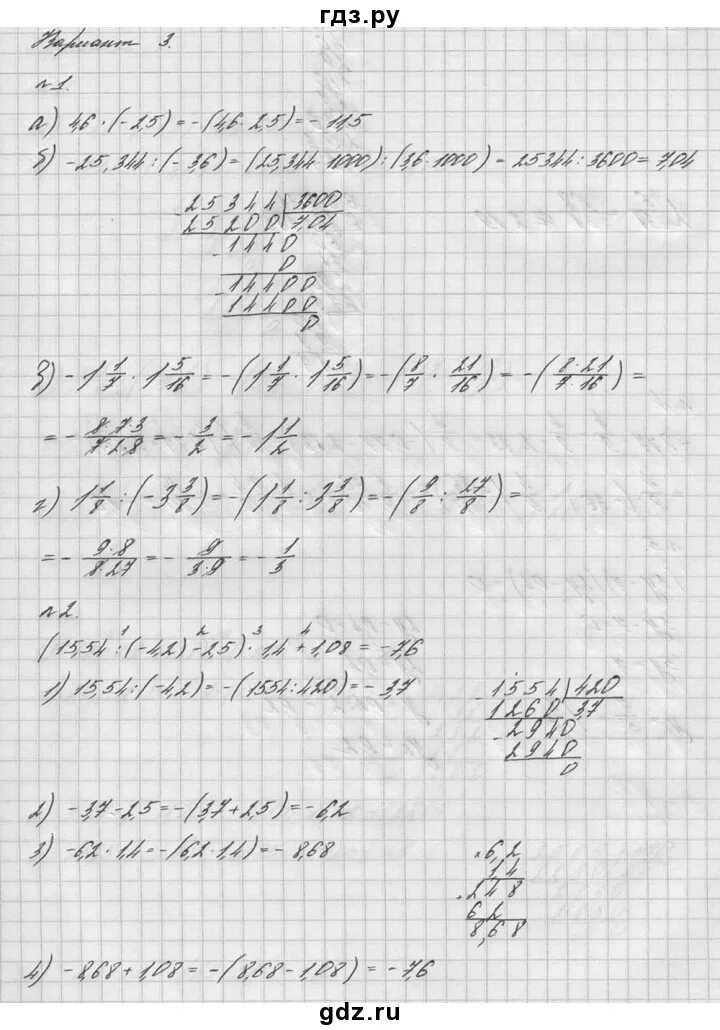 гдз.ру
Вариант 3.
№1.
а) 4,6 · (-2,5) = -(4,6 · 2,5) = -11,5
б) -25,344 : (-3,6) = (25,344 · 1000) : (3,6 · 1000) = 25344 : 3600 = 7,04
25344 | 3600
25200 | 7,04
1440
0
14400
14400
0
в) -1 1/7 · 1 5/16 = -(1 1/7 · 1 5/16) = -(8/7 · 21/16) = -(8·21/7·16) =
= - 8·7·3/7·2·8 = - 3/2 = -1 1/2
г) 1 1/8 : (-3 3/8) = -(1 1/8 : 3 3/8) = -(9/8 : 27/8) =
= - 9·8/8·27 = - 9/3·9 = - 1/3
№2.
1 2 3 4
(15,54 : (-4,2) - 2,5) · 1,4 + 1,08 = -7,6
1) 15,54 : (-4,2) = -(1554 : 420) = -3,7
1554 | 420
1260 | 3,7
2940
2940
0
2) -3,7 - 2,5 = -(3,7 + 2,5) = -6,2
3) -6,2 · 1,4 = -(6,2 · 1,4) = -8,68
× 6,2
1,4
+ 248
62
8,68
4) -8,68 + 1,08 = -(8,68 - 1,08) = -7,6
gdz.ru